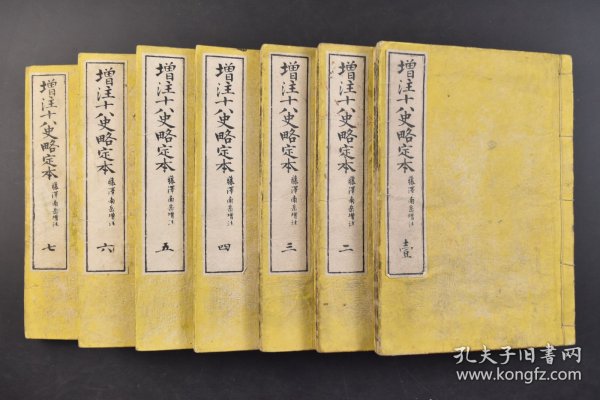 增注十八史略定本
藤澤南岳增注
壹
增注十八史略定本
藤澤南岳增注
二
增注十八史略定本
藤澤南岳增注
三
增注十八史略定本
藤澤南岳增注
四
增注十八史略定本
藤澤南岳增注
五
增注十八史略定本
藤澤南岳增注
六
增注十八史略定本
藤澤南岳增注
七
孔夫子旧书网
www.kongfz.com